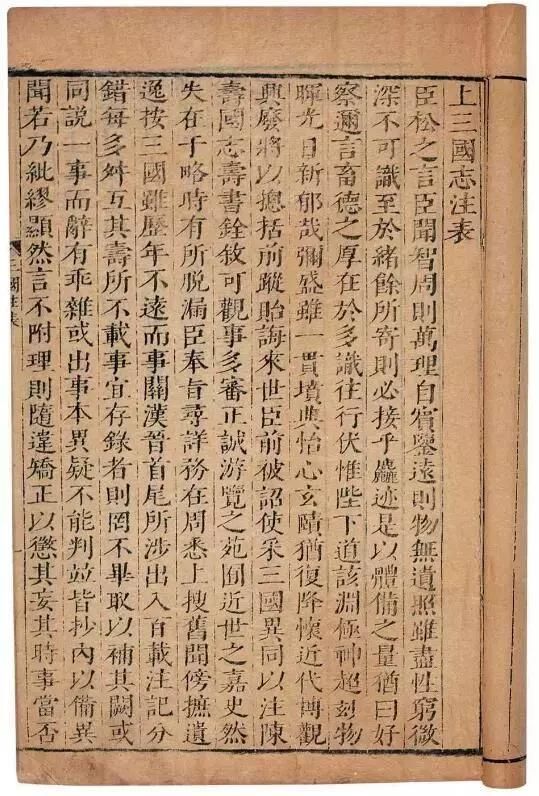 上三國志注表
臣松之言臣聞智周則萬理自賓鑒遠則物無遺照雖盡性窮微
深不可識至於緒餘所寄則必接乎麤迹是以體備之量猶曰好
察邇言畜德之厚在於多識往行伏惟陛下道該淵極神超妙物
暉光日新郁哉彌盛雖一貫墳典怡心玄賾猶復降懷近代博觀
興廢將以總括前蹤貽誨來世臣前被詔使采三國異同以注陳
壽國志壽書銓敘可觀事多審正誠游覽之苑囿近世之嘉史然
失在于略時有所脫漏臣奉旨尋詳務在周悉上搜舊聞傍摭遺
逸按三國雖歷年不遠而事關漢晉首尾所涉出入百載注記分
錯每多舛互其壽所不載事宜存錄者則罔不畢取以補其闕或
同說一事而辭有乖雜或出事本異疑不能判竝皆抄內以備異
聞若乃紕繆顯然言不附理則隨違矯正以懲其妄其時事當否
國注表